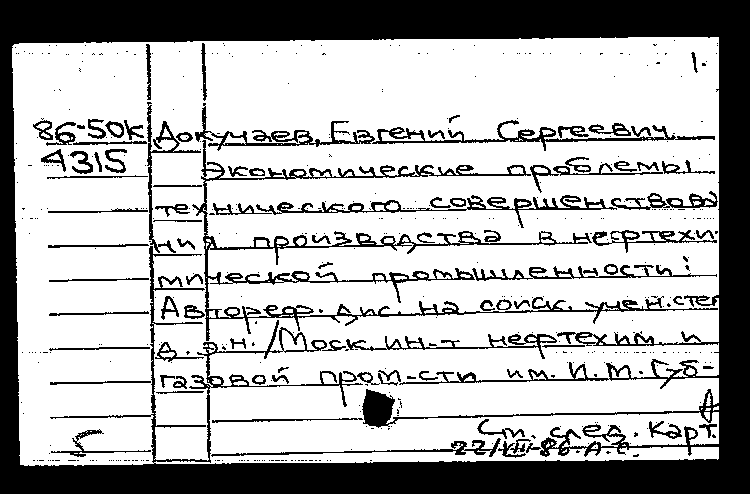 1.
86-50к Докучаев, Евгений Сергеевич.
4315
Экономические проблемы
технического совершенствова
ния производства в нефтехи-
мической промышленности:
Автореф. дис. на соиск. учен. степ
д.э.н. / Моск. ин-т нефтехим. и
газовой пром-сти им. И.М. Губ-
См. след. карт.
5
22/VIII-86 А.С.